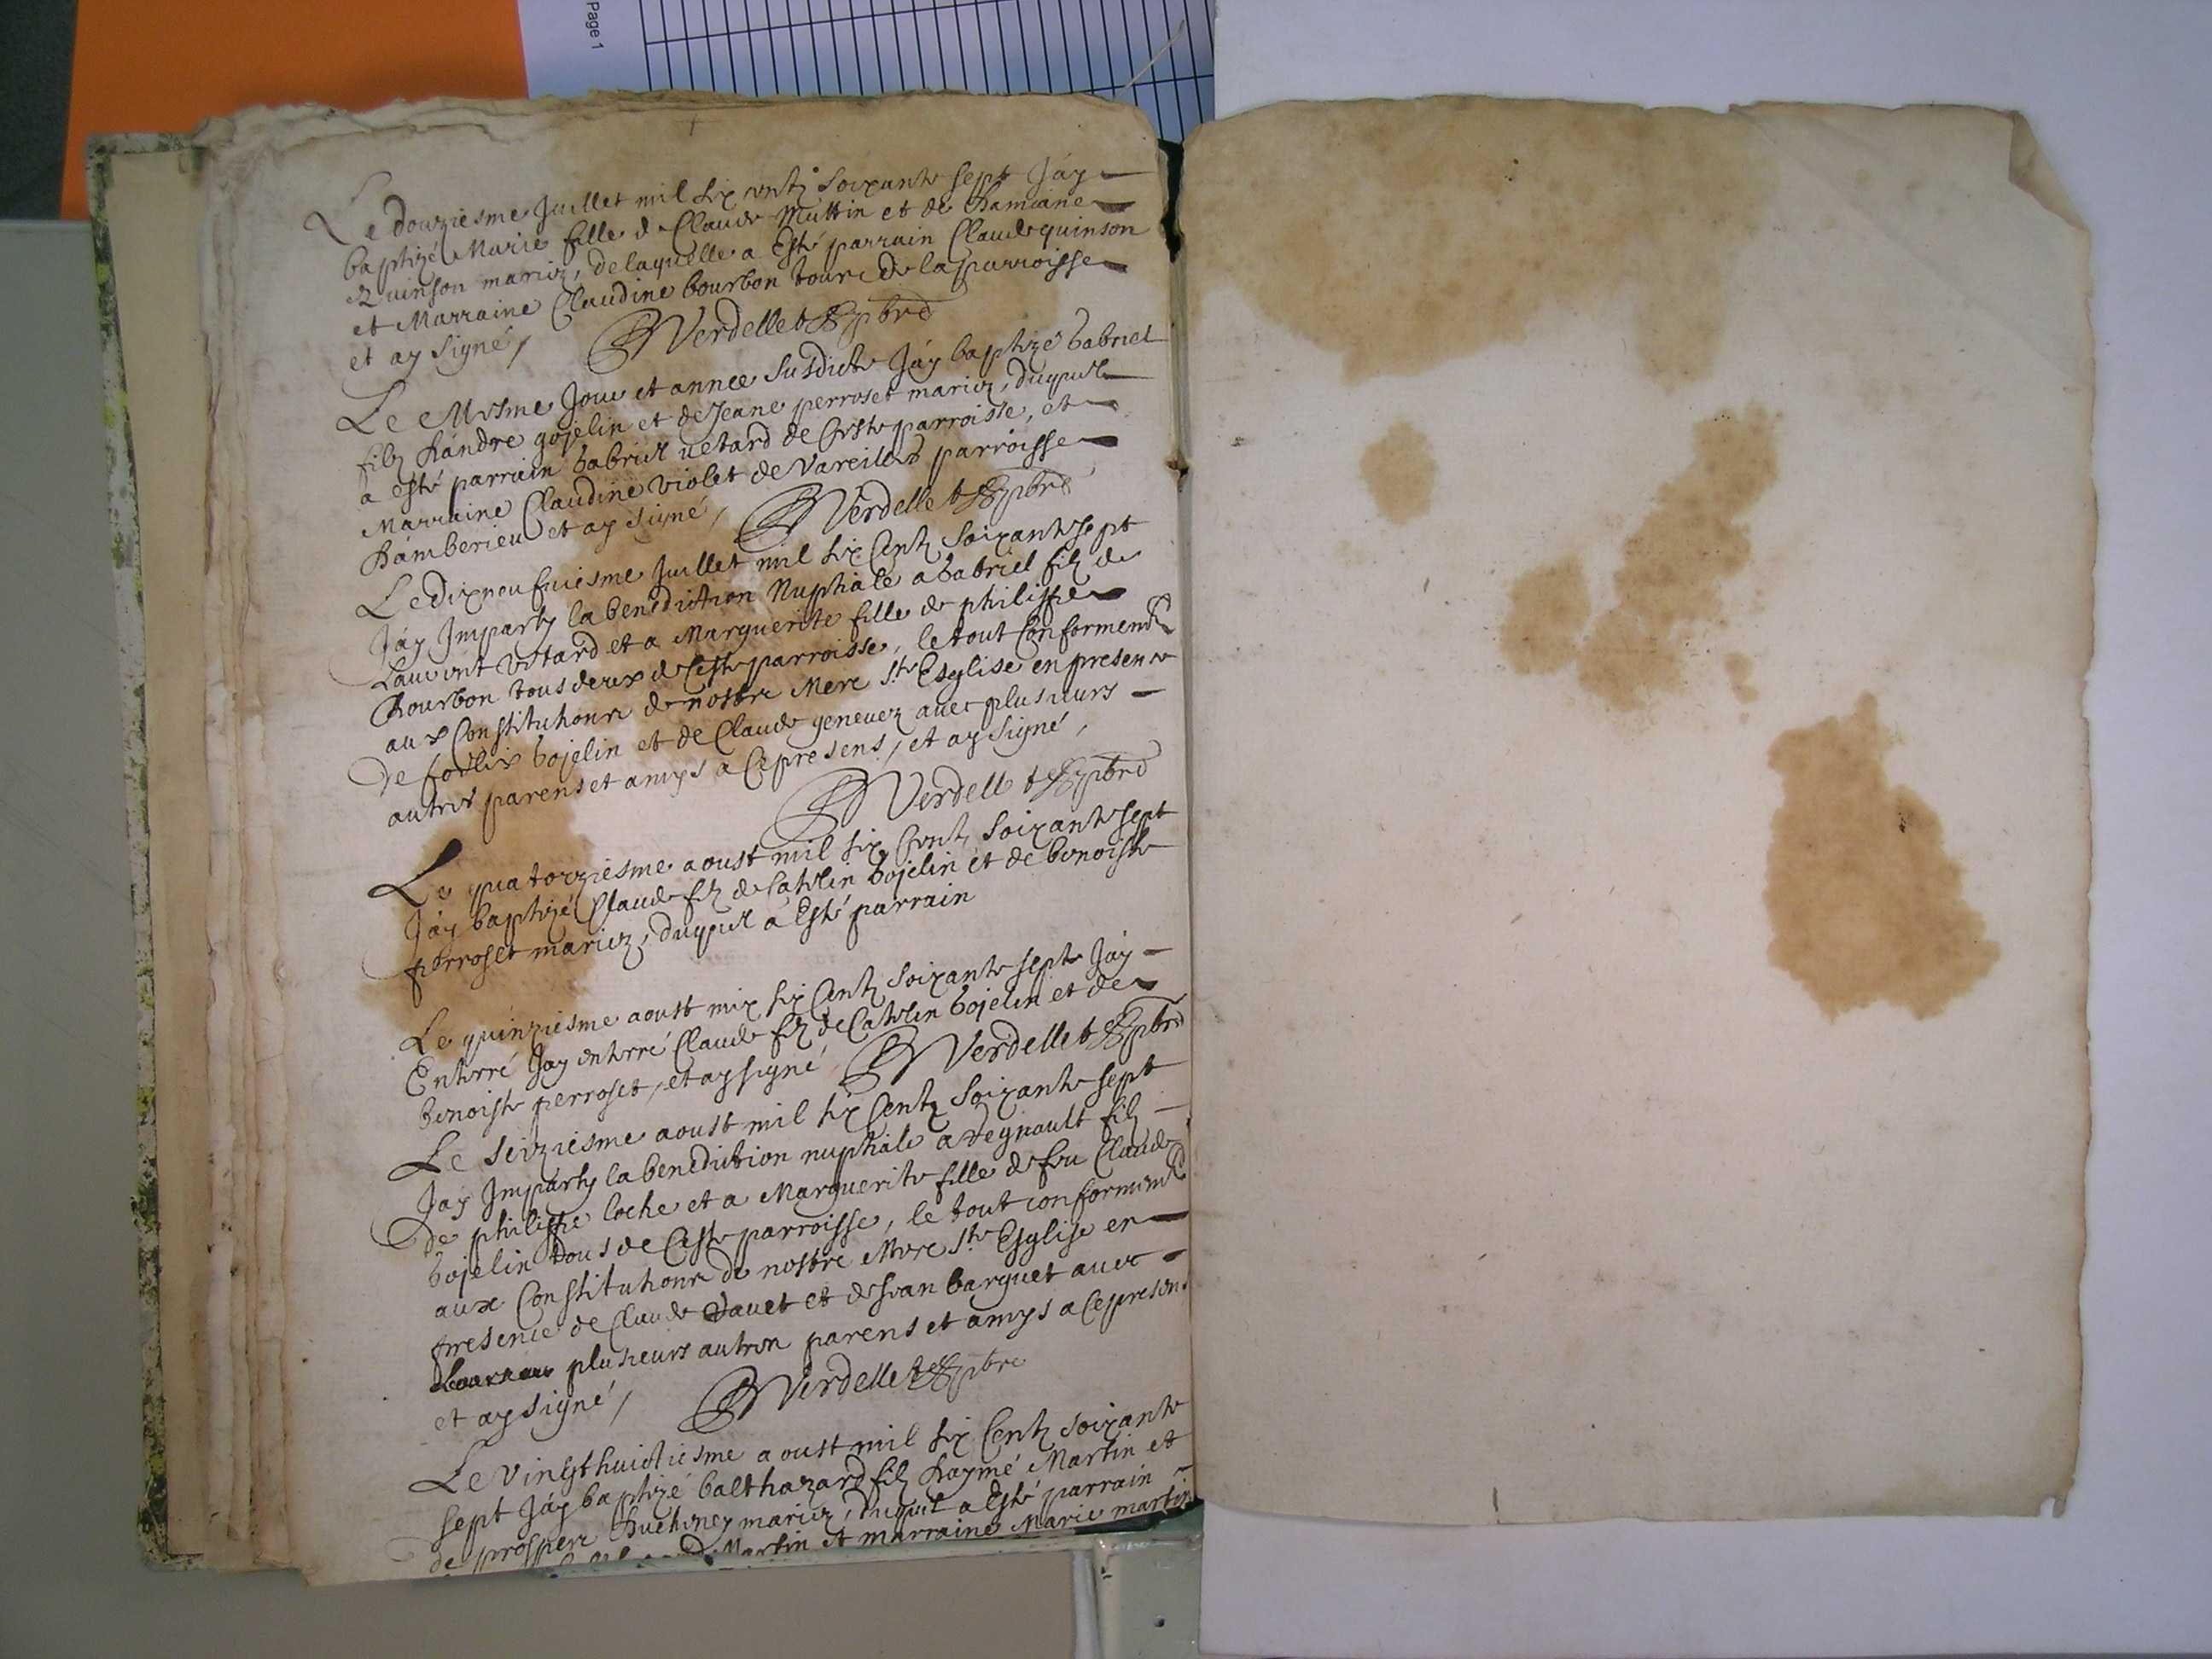 Page 1
Le douziesme Juillet mil six centz soixante sept Jáy
baptizé Marie fille de Claude Muttin et de Damiane
Quinson mariez, de laquelle a Esté parrain Claude quinson
et Marraine Claudine bourbon tous de la parroisse
et ay signé, Verdellet pbre
Le Mesme Jour et annee susdicte Jáy baptizé Gabriel
filz Dándre gojelin et de Jeane perroset mariez, duquel
a esté parrain Gabriel uetard de Ceste parroisse, et
Marraine Claudine Violet de Vareilles parroisse
Dámberieu et ay signé, Verdellet pbre
Le dixneufuiesme Juillet mil six Centz soixante sept
Jáy Imparty la benediction Nuptiale a Gabriel filz de
Laurent Vetard et a Marguerite fille de philippe
Bourbon tous deux de Ceste parroisse, le tout Conformemt
aux Constitutions de nostre Mere Ste Esglise en presence
De gojelin et de Claude geneuez auec plusieurs
autres parens et amys a Ce presens, et ay signé,
Verdellet pbre
Le quatorziesme aoust mil six Centz soixante sept
Jáy baptizé Claude filz de Catelin Gojelin et de benoiste
perroset mariez, duquel a Esté parrain
Le quinziesme aoust mix six Centz soixante sept Jáy
Enterré Jay enterré Claude filz de Catelin Gojelin et de
benoiste perroset, et ay signé Verdellet pbre
Le seiziesme aoust mil six Centz soixante sept
Jáy Imparty la benediction nuptiale a Regnault filz
de philippe loche et a Marguerite fille de feu Claude
Gojelin tous de Ceste parroisse, le tout conformemt
aux Constitutions de nostre Mere Ste Esglise en
presence de Claude Dauet et de Jean barquet auec
plusieurs autres parens et amys a Ce presens
et ay signé, Verdellet pbre
Le vingthuictiesme aoust mil six Centz soixante
sept Jáy baptizé balthazard filz Daymé Martin et
de prospere mariez, duquel a Esté parrain
Martin et marraine Marie martin